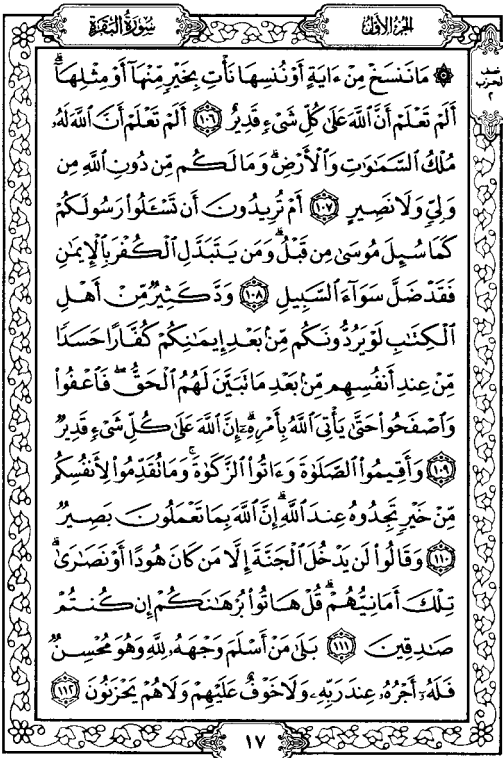 سُورَةُ البَقَرَةِ
الجُزءُ الأوَّلُ
نصف
الحزب
٢
۞ مَا نَنسَخْ مِنْ ءَايَةٍ أَوْ نُنسِهَا نَأْتِ بِخَيْرٍ مِّنْهَآ أَوْ مِثْلِهَآ ۗ
أَلَمْ تَعْلَمْ أَنَّ ٱللَّهَ عَلَىٰ كُلِّ شَىْءٍ قَدِيرٌ ١٠٦ أَلَمْ تَعْلَمْ أَنَّ ٱللَّهَ لَهُۥ
مُلْكُ ٱلسَّمَٰوَٰتِ وَٱلْأَرْضِ ۗ وَمَا لَكُم مِّن دُونِ ٱللَّهِ مِن
وَلِىٍّ وَلَا نَصِيرٍ ١٠٧ أَمْ تُرِيدُونَ أَن تَسْـَٔلُوا۟ رَسُولَكُمْ
كَمَا سُئِلَ مُوسَىٰ مِن قَبْلُ ۗ وَمَن يَتَبَدَّلِ ٱلْكُفْرَ بِٱلْإِيمَٰنِ
فَقَدْ ضَلَّ سَوَآءَ ٱلسَّبِيلِ ١٠٨ وَدَّ كَثِيرٌ مِّنْ أَهْلِ
ٱلْكِتَٰبِ لَوْ يَرُدُّونَكُم مِّنۢ بَعْدِ إِيمَٰنِكُمْ كُفَّارًا حَسَدًا
مِّنْ عِندِ أَنفُسِهِم مِّنۢ بَعْدِ مَا تَبَيَّنَ لَهُمُ ٱلْحَقُّ ۖ فَٱعْفُوا۟
وَٱصْفَحُوا۟ حَتَّىٰ يَأْتِىَ ٱللَّهُ بِأَمْرِهِۦٓ ۗ إِنَّ ٱللَّهَ عَلَىٰ كُلِّ شَىْءٍ قَدِيرٌ
١٠٩ وَأَقِيمُوا۟ ٱلصَّلَوٰةَ وَءَاتُوا۟ ٱلزَّكَوٰةَ ۚ وَمَا تُقَدِّمُوا۟ لِأَنفُسِكُم
مِّنْ خَيْرٍ تَجِدُوهُ عِندَ ٱللَّهِ ۗ إِنَّ ٱللَّهَ بِمَا تَعْمَلُونَ بَصِيرٌ
١١٠ وَقَالُوا۟ لَن يَدْخُلَ ٱلْجَنَّةَ إِلَّا مَن كَانَ هُودًا أَوْ نَصَٰرَىٰ ۗ
تِلْكَ أَمَانِيُّهُمْ ۗ قُلْ هَاتُوا۟ بُرْهَٰنَكُمْ إِن كُنتُمْ
صَٰدِقِينَ ١١١ بَلَىٰ مَنْ أَسْلَمَ وَجْهَهُۥ لِلَّهِ وَهُوَ مُحْسِنٌ
فَلَهُۥٓ أَجْرُهُۥ عِندَ رَبِّهِۦ وَلَا خَوْفٌ عَلَيْهِمْ وَلَا هُمْ يَحْزَنُونَ ١١٢
١٧